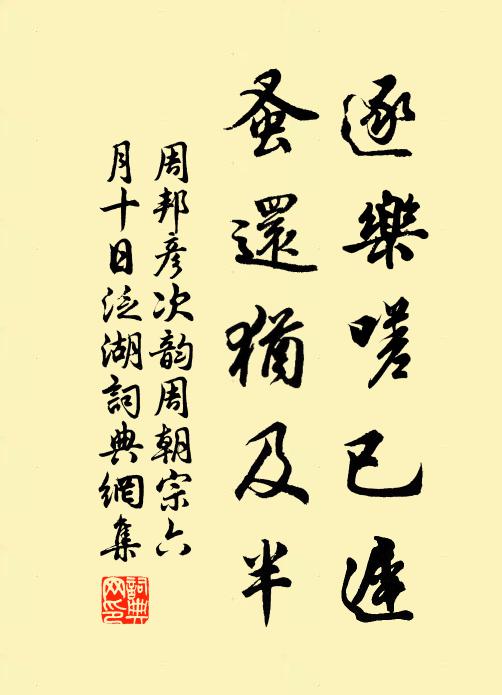 逐樂嗟已遲
蚤還猶及半
周邦彥次韵周朝宗六
月十日泛湖詞典網集
詞典
网印